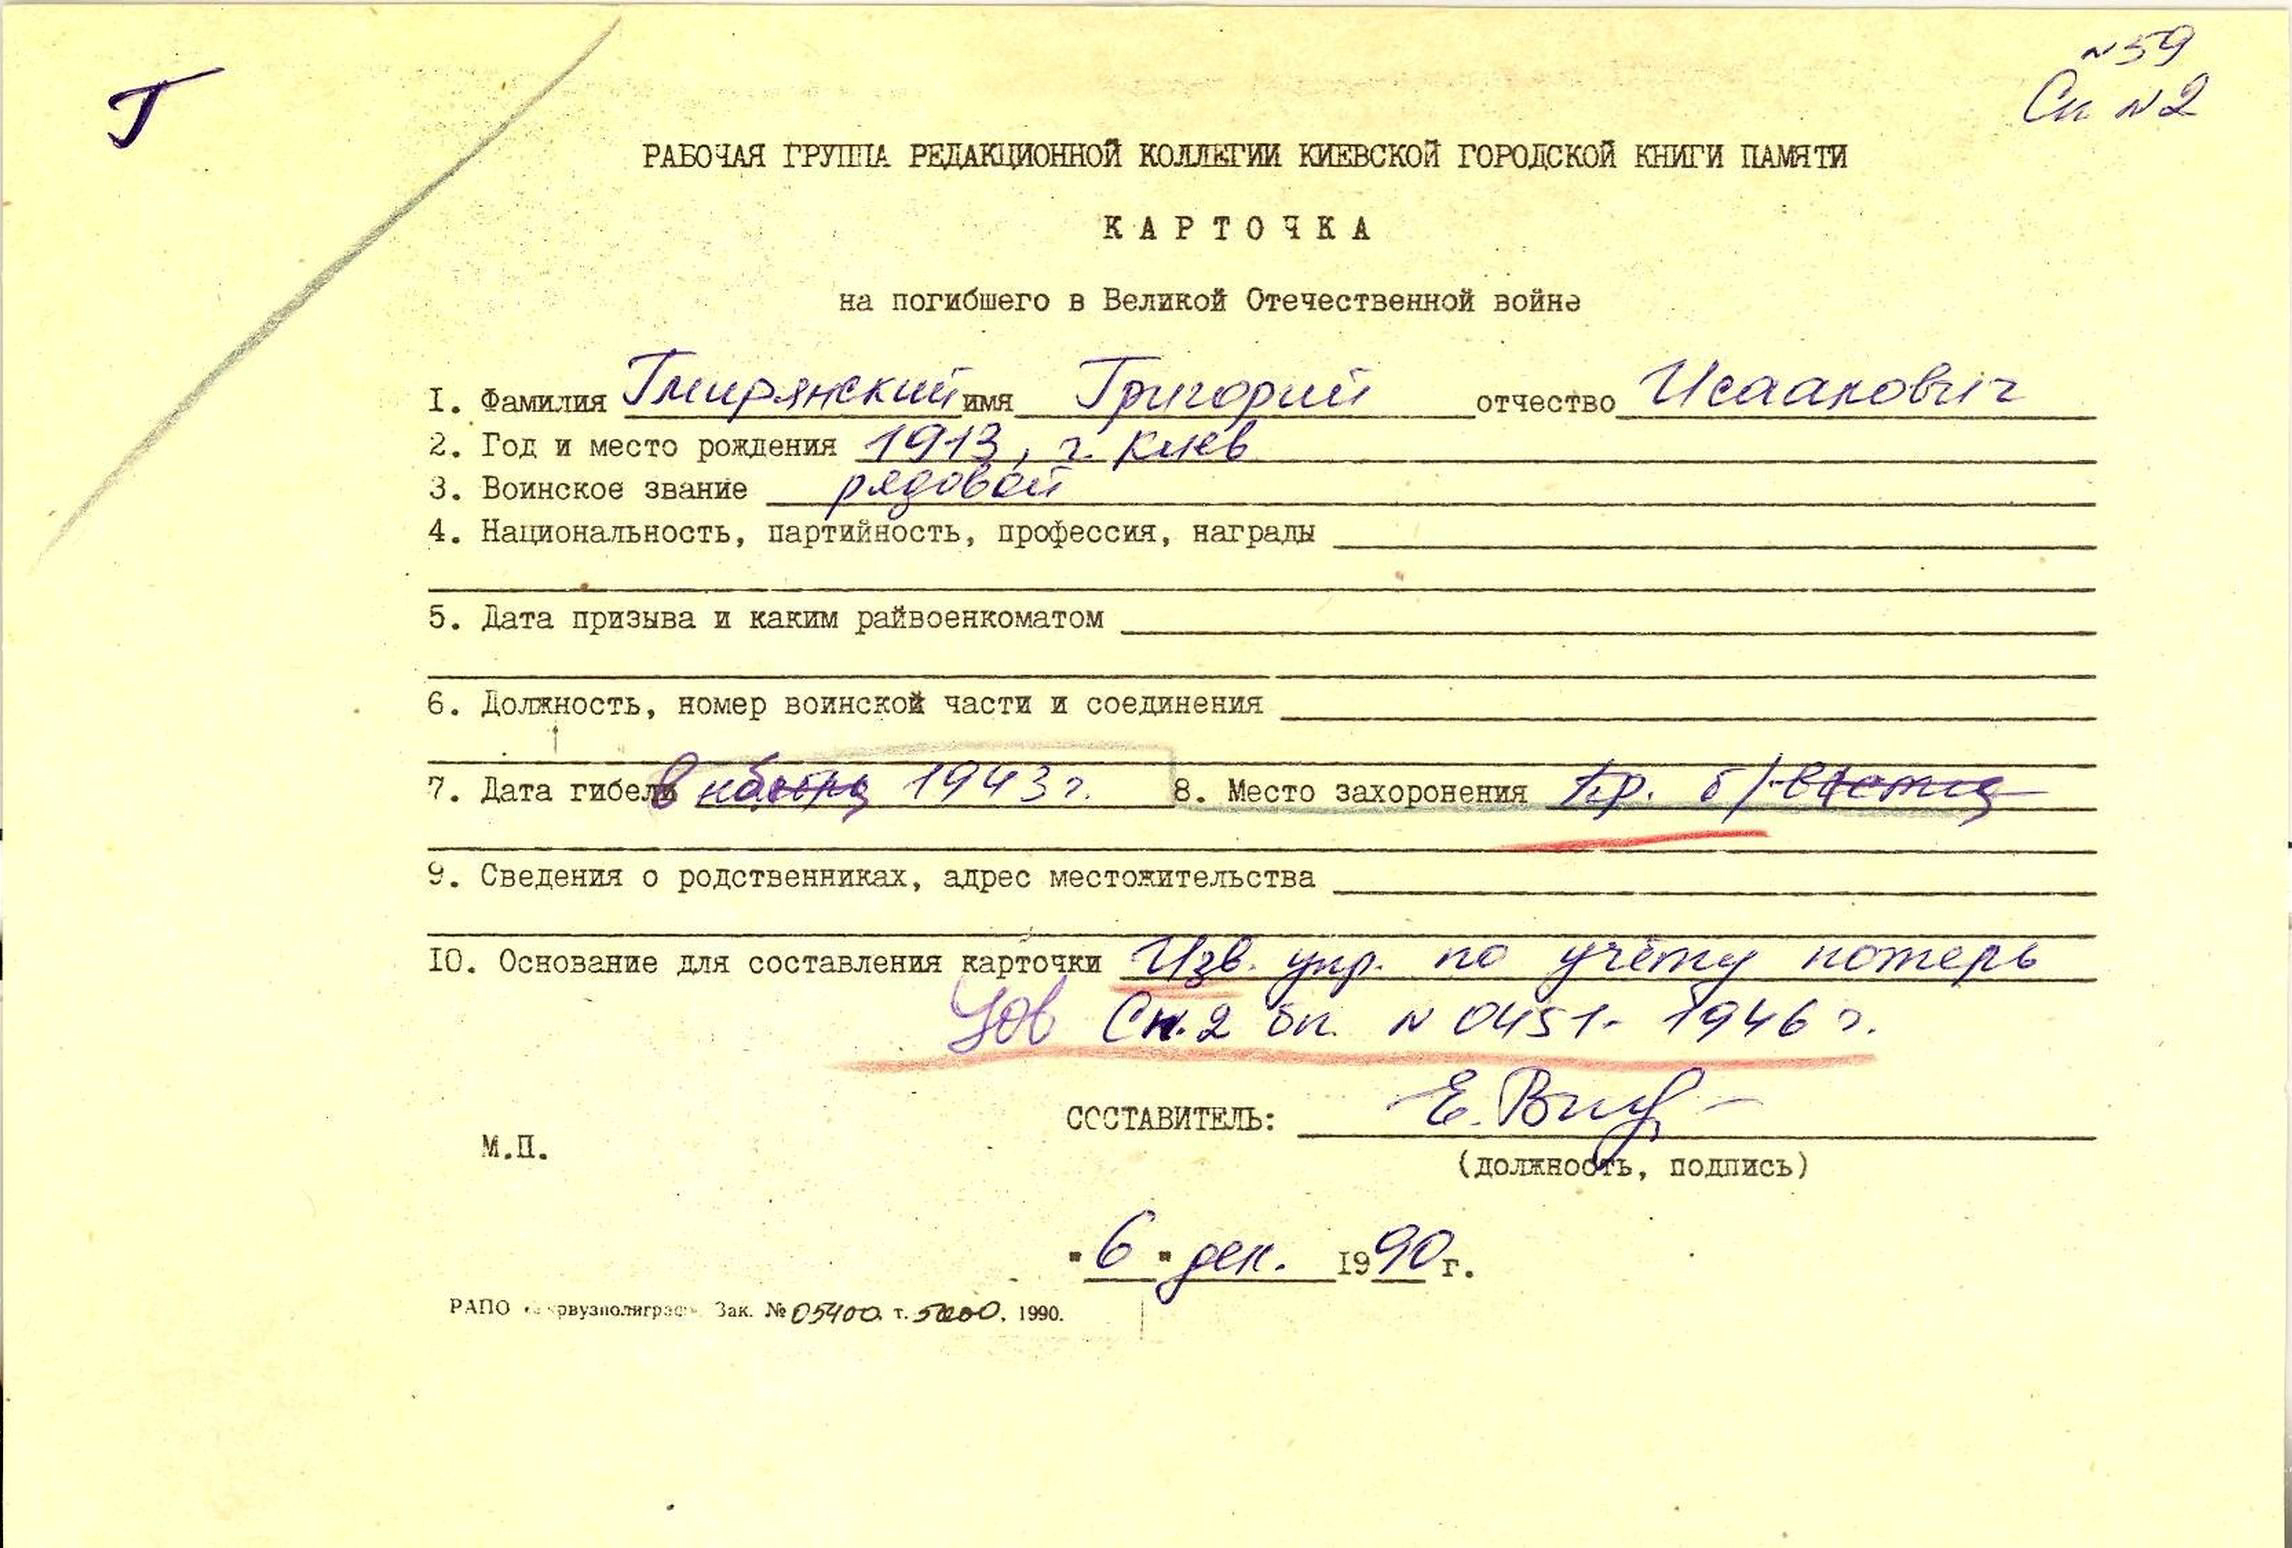 Г
№59
Сп №2
РАБОЧАЯ ГРУППА РЕДАКЦИОННОЙ КОЛЛЕГИИ КИЕВСКОЙ ГОРОДСКОЙ КНИГИ ПАМЯТИ
КАРТОЧКА
на погибшего в Великой Отечественной войне
I. Фамилия Гмирянский имя Григорий отчество Исаакович
2. Год и место рождения 1913, г. Киев
3. Воинское звание рядовой
4. Национальность, партийность, профессия, награды
5. Дата призыва и каким райвоенкоматом
6. Должность, номер воинской части и соединения
7. Дата гибели в 1943 г. 8. Место захоронения
9. Сведения о родственниках, адрес местожительства
10. Основание для составления карточки Изв. упр. по учёту потерь
Сп. 2 вп. № 0451- 1946 г.
СОСТАВИТЕЛЬ:
М.П.
(должность, подпись)
"6" дек. 1990 г.
РАПО Зак. № 05400. т. 5000. 1990.